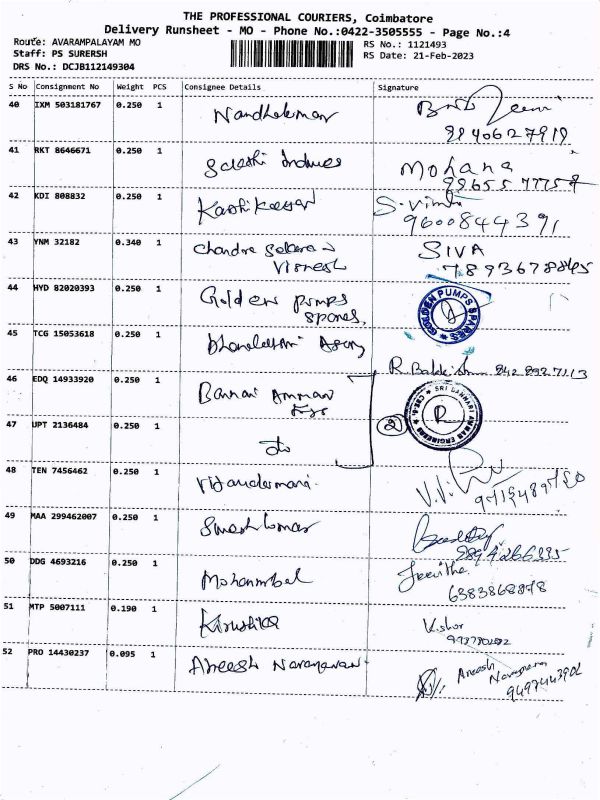 THE PROFESSIONAL COURIERS, Coimbatore
Delivery Runsheet - MO - Phone No.:0422-3505555 - Page No.:4
Route: AVARAMPALAYAM MO
RS No.: 1121493
Staff: PS SURERSH
RS Date: 21-Feb-2023
DRS No.: DCJB112149304
S No Consignment No Weight PCS Consignee Details Signature
40 IXM 503181767 0.250 1 Nandhakumar
9840627919
41 RKT 8646671 0.250 1 Mohana
42 KDI 808832 0.250 1 S. Vimla
9600844391
43 YNM 32182 0.340 1 Chandra Sekaran SIVA
Vignesh 7893678845
44 HYD 82020393 0.250 1 Golden pumps GOLDEN PUMPS SPARES
spares
45 TCG 15053618 0.250 1 Dhanalaxmi Agency
842 892 7113
46 EDQ 14933920 0.250 1 Bannari Amman SRI BANNARI AMMAN ENGINEERING
Engg
47 UPT 2136484 0.250 1 do 2
48 TEN 7456462 0.250 1
49 MAA 299462007 0.250 1 Sureshkumar
9894266335
50 DDG 4693216 0.250 1 Mohanambal Jeevitha
6383868878
51 MTP 5007111 0.190 1 Kirushika Kishor
52 PRO 14430237 0.095 1 Areesh Narayanan Areesh
Narayanan
9497443902